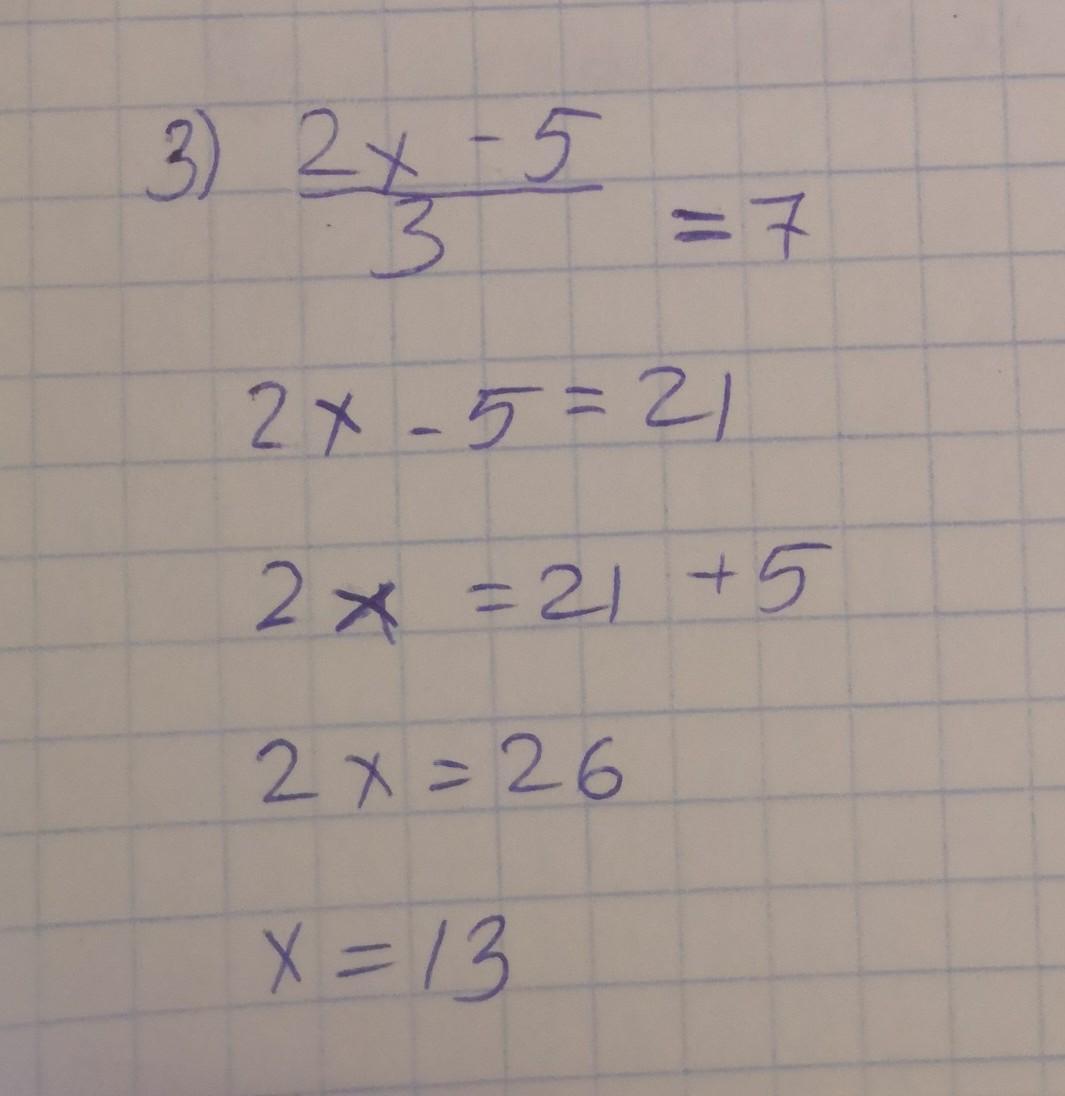 3) (2x - 5)/3 = 7
2x - 5 = 21
2x = 21 + 5
2x = 26
x = 13